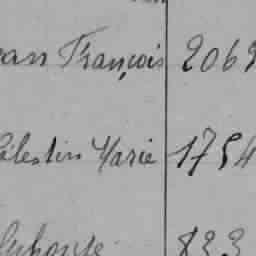 ean François 2069
Célestin Marie 1754
Alphonse 833